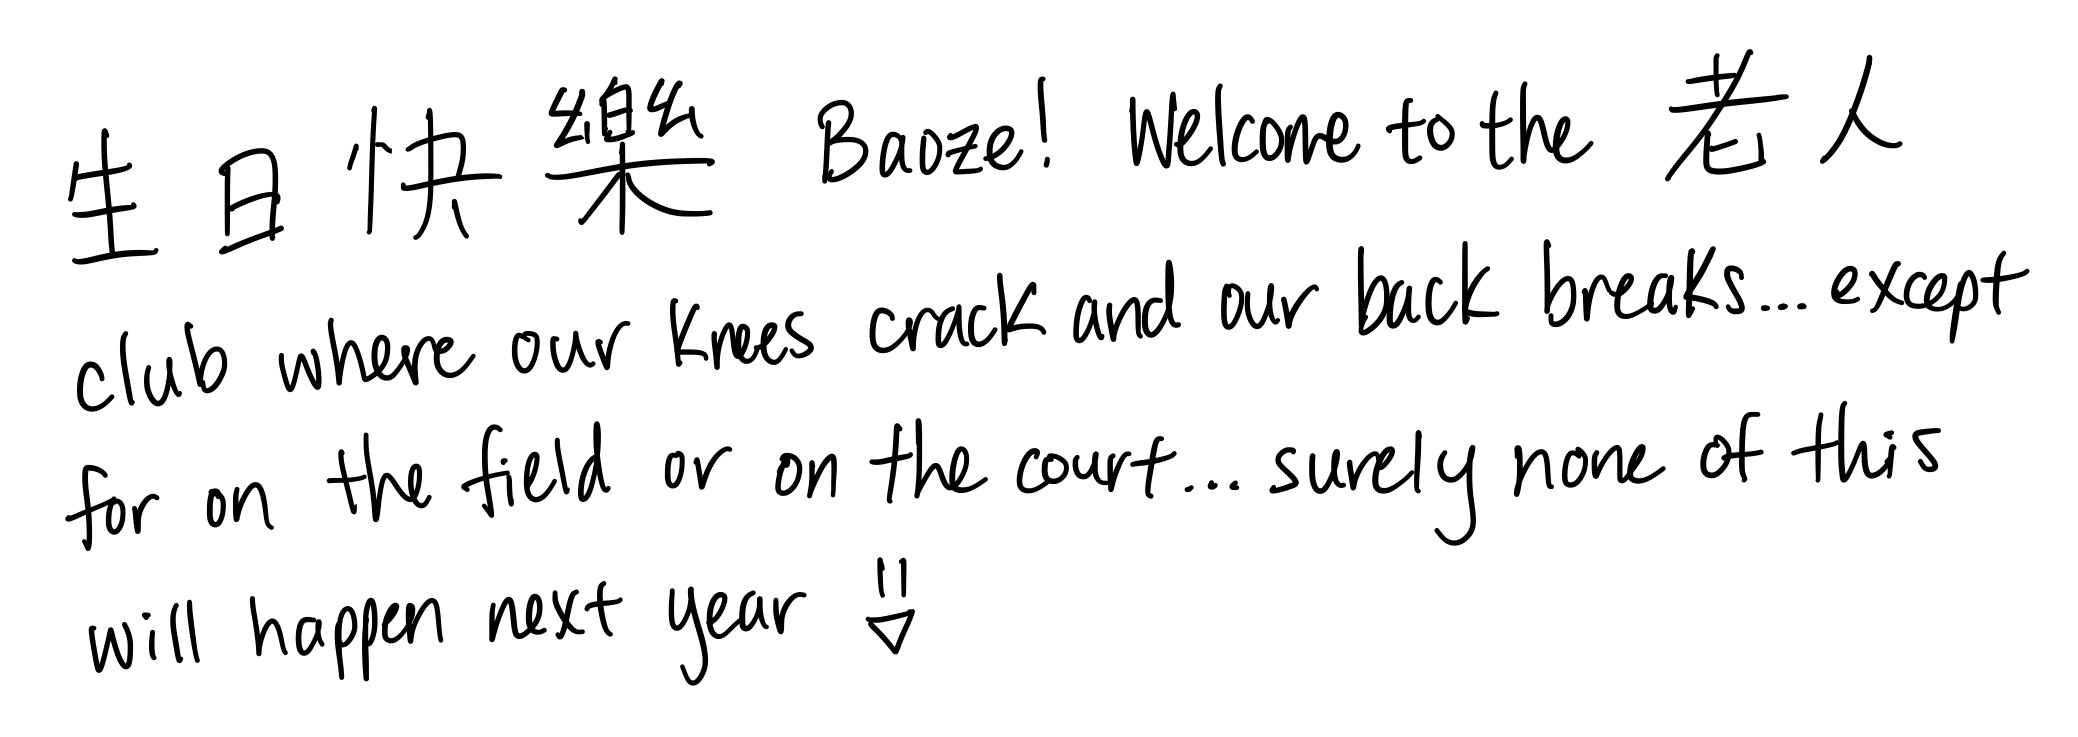 生日快樂 Baoze! Welcome to the 老人
club where our knees crack and our back breaks... except
for on the field or on the court... surely none of this
will happen next year